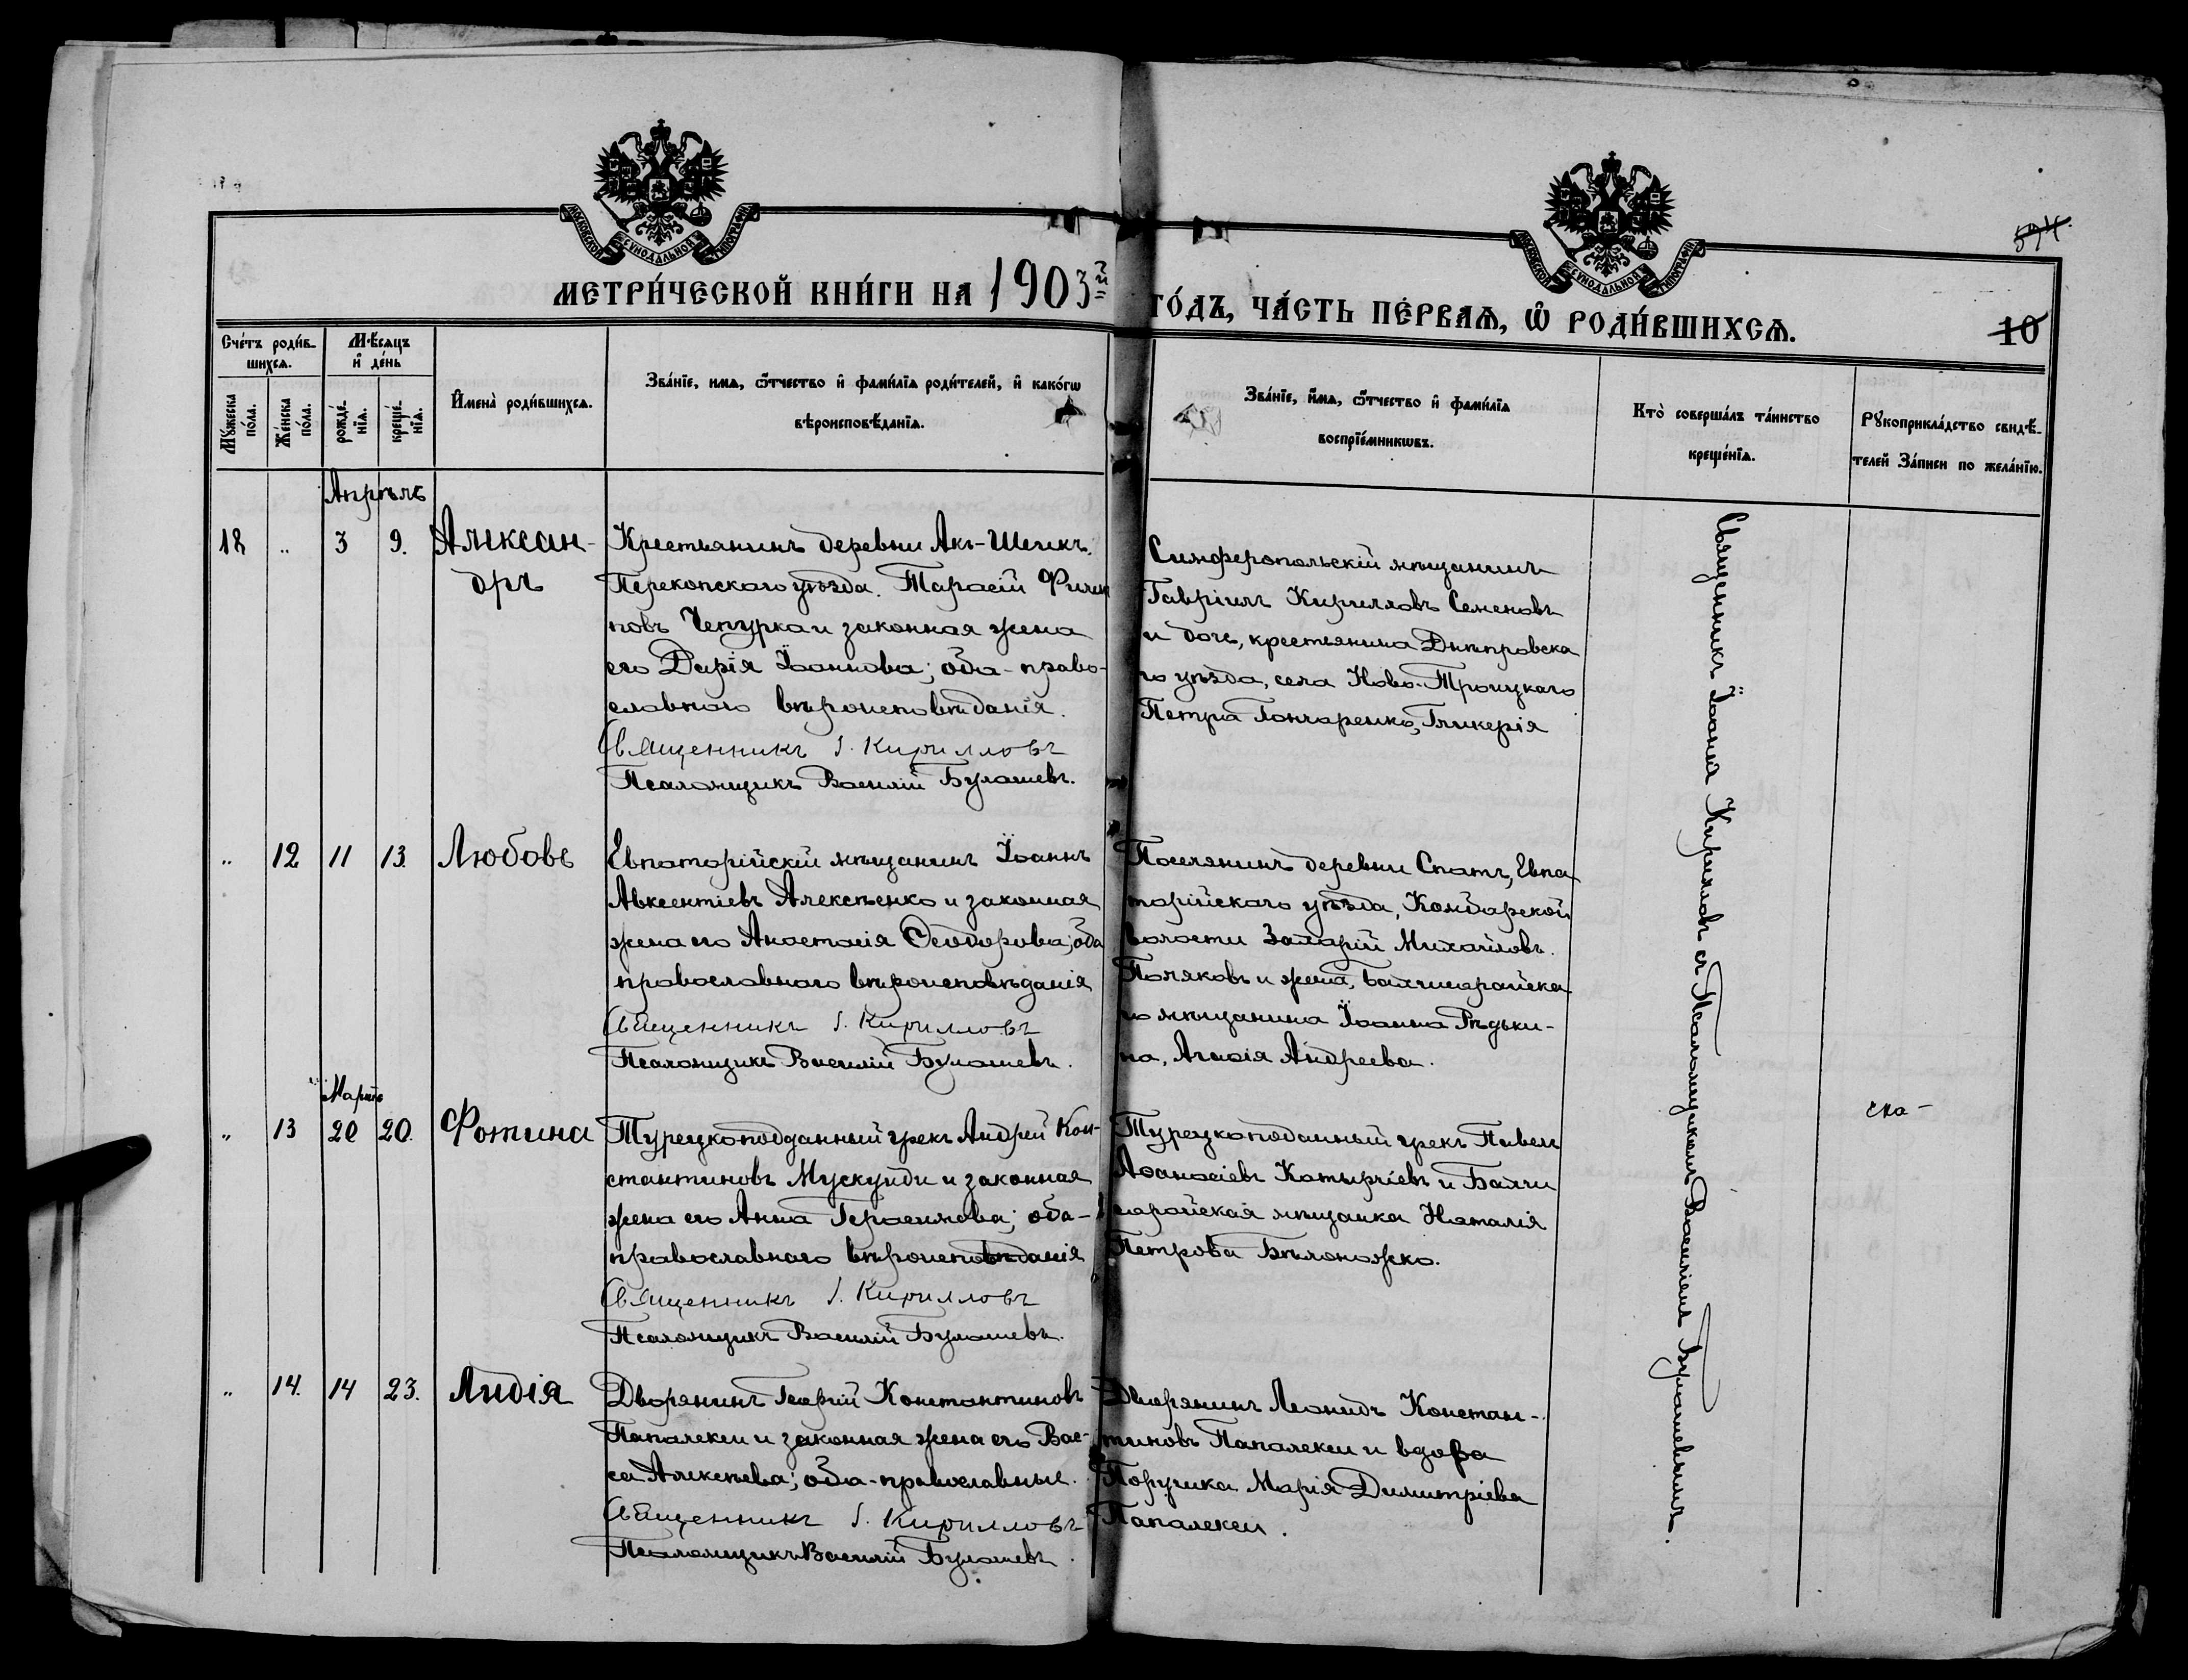 МОСКОВСКОЙ СУНОДАЛЬНОЙ ТИПОГРАФІИ
МОСКОВСКОЙ СУНОДАЛЬНОЙ ТИПОГРАФІИ
574.
МЕТРИ́ЧЕСКОЙ КНИ́ГИ НА 1903й ГО́ДЪ, ЧА́СТЬ ПЕ́РВАѦ, Ѽ РОДИ́ВШИХСѦ.
10
Сче́тъ роди́в-
шихсѧ.
Мѣ́сѧцъ
и҆ де́нь
Мꙋ́жеска
по́ла.
Же́нска
по́ла.
рожде́-
нїѧ.
креще́-
нїѧ.
И҆мена̀ роди́вшихсѧ.
Зва́нїе, имѧ, ѻ҆́тчество и҆ фами́лїѧ роди́телей, и҆ како́гѡ
вѣроисповѣ́данїѧ.
Зва́нїе, и҆́мѧ, ѻ҆́тчество и҆ фами́лїѧ
воспрїе́мникѡвъ.
Кто̀ соверша́лъ та́инство
креще́нїѧ.
Рꙋкоприкла́дство свидѣ́-
телей За́писи по жела́нїю.
Апрѣль
18 „ 3 9. Алексан-
дръ
Крестьянинъ деревни Акъ-Шеихъ.
Перекопскаго уѣзда. Тарасій Филип
повъ Чепурка и законная жена
его Дарія Іоаннова; оба - право-
славнаго вѣроисповѣданія.
Священникъ І. Кирилловъ
Псаломщикъ Василій Булашевъ.
Симферопольскій мѣщанинъ
Гавріилъ Кирилловъ Семеновъ
и дочь, крестьянина Днѣпровска
го уѣзда, села Ново-Троицкаго
Петра Гончаренко, Гликерія
„ 12 11 13. Любовь
Евпаторійскій мѣщанинъ Іоаннъ
Авксентіевъ Алексѣенко и законная
жена его Анастасія Ѳеодорова; оба
православнаго вѣроисповѣданія
Священникъ І. Кирилловъ
Псаломщикъ Василій Булашевъ.
Поселянинъ деревни Спатъ, Евпа-
торійскаго уѣзда, Кондарской
волости Захарій Михайловъ.
Поляковъ и жена, Бахчисарайска-
го мѣщанина Іоанна Рѣдьки-
на, Агафія Андреева.
Мартъ
„ 13 20 20. Фотина
Турецкоподданный грекъ Андрей Кон-
стантиновъ Мускуиди и законная
жена его Анна Герасимова; оба -
православнаго вѣроисповѣданія
Священникъ І. Кирилловъ
Псаломщикъ Василій Булашевъ.
Турецкоподанный грекъ Павелъ
Аѳанасіевъ Катырчіевъ и Бахчи
сарайская мѣщанка Наталія
Петрова Бѣлоножко.
ска-
„ 14. 14 23. Лидія
Дворянинъ Георгій Константиновъ
Папалекси и законная жена его Вас-
са Алексѣева; оба - православные.
Священникъ І. Кирилловъ
Псаломщикъ Василій Булашевъ.
Дворянинъ Леонидъ Констан-
тиновъ Папалекси и вдова
Поручика Марія Димитріева
Папалекси.
Священникъ Іоаннъ Кирилловъ съ Псаломщикомъ Василіемъ Булашевымъ.